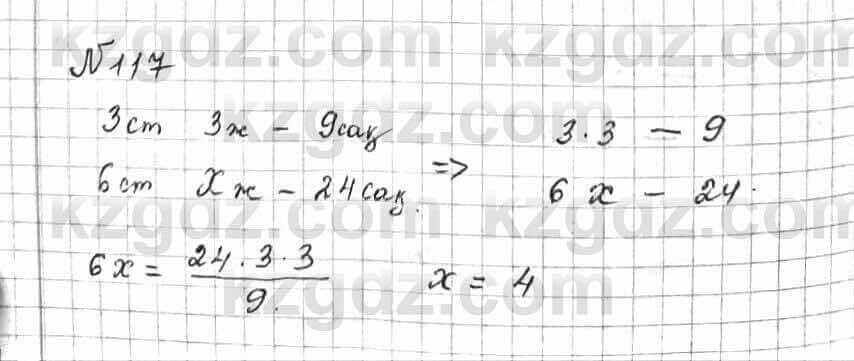 №117
3ст 3ж - 9сағ => 3·3 - 9
6ст Xж - 24сағ. 6 x - 24.
6x = 24·3·3/9. x = 4
kzgdz.com kzgdz.com
kzgdz.com kzgdz.com
kzgdz.com kzgdz.com